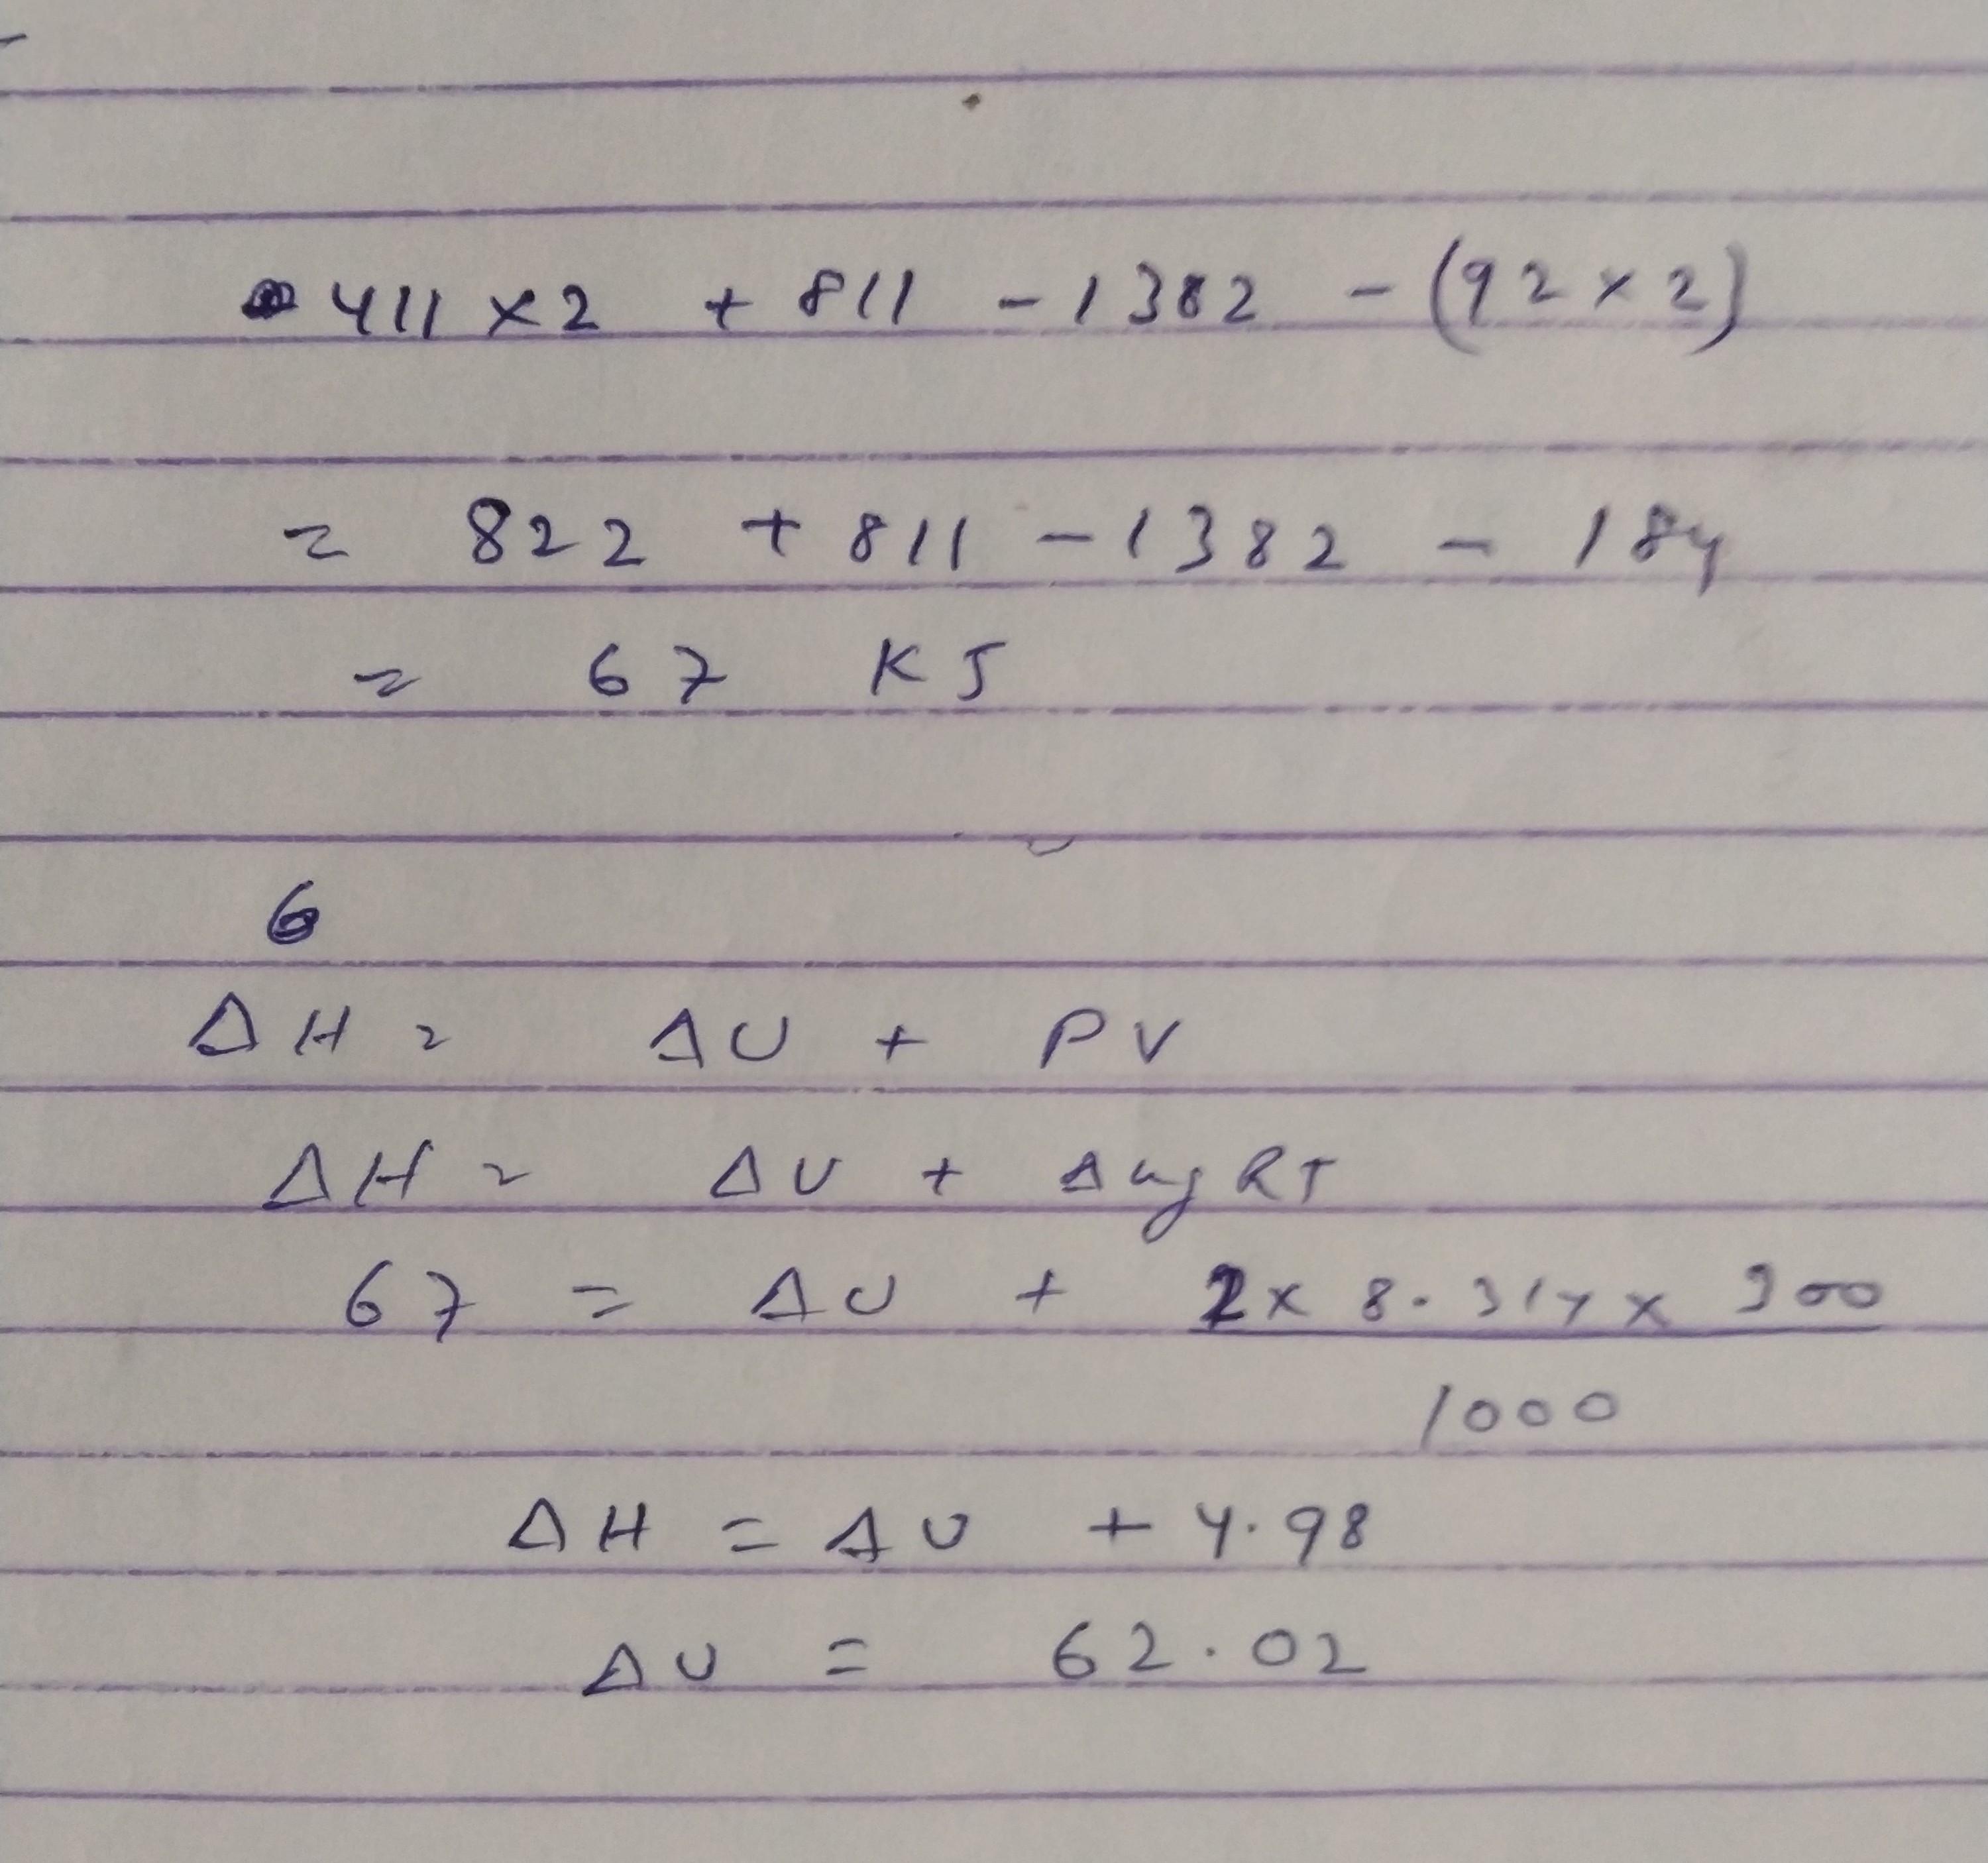 411 × 2 + 811 - 1382 - (92 × 2)
= 822 + 811 - 1382 - 184
= 67 KJ
6
ΔH = ΔU + PV
ΔH = ΔU + Δng RT
67 = ΔU + 2 × 8.314 × 300
1000
ΔH = ΔU + 4.98
ΔU = 62.02